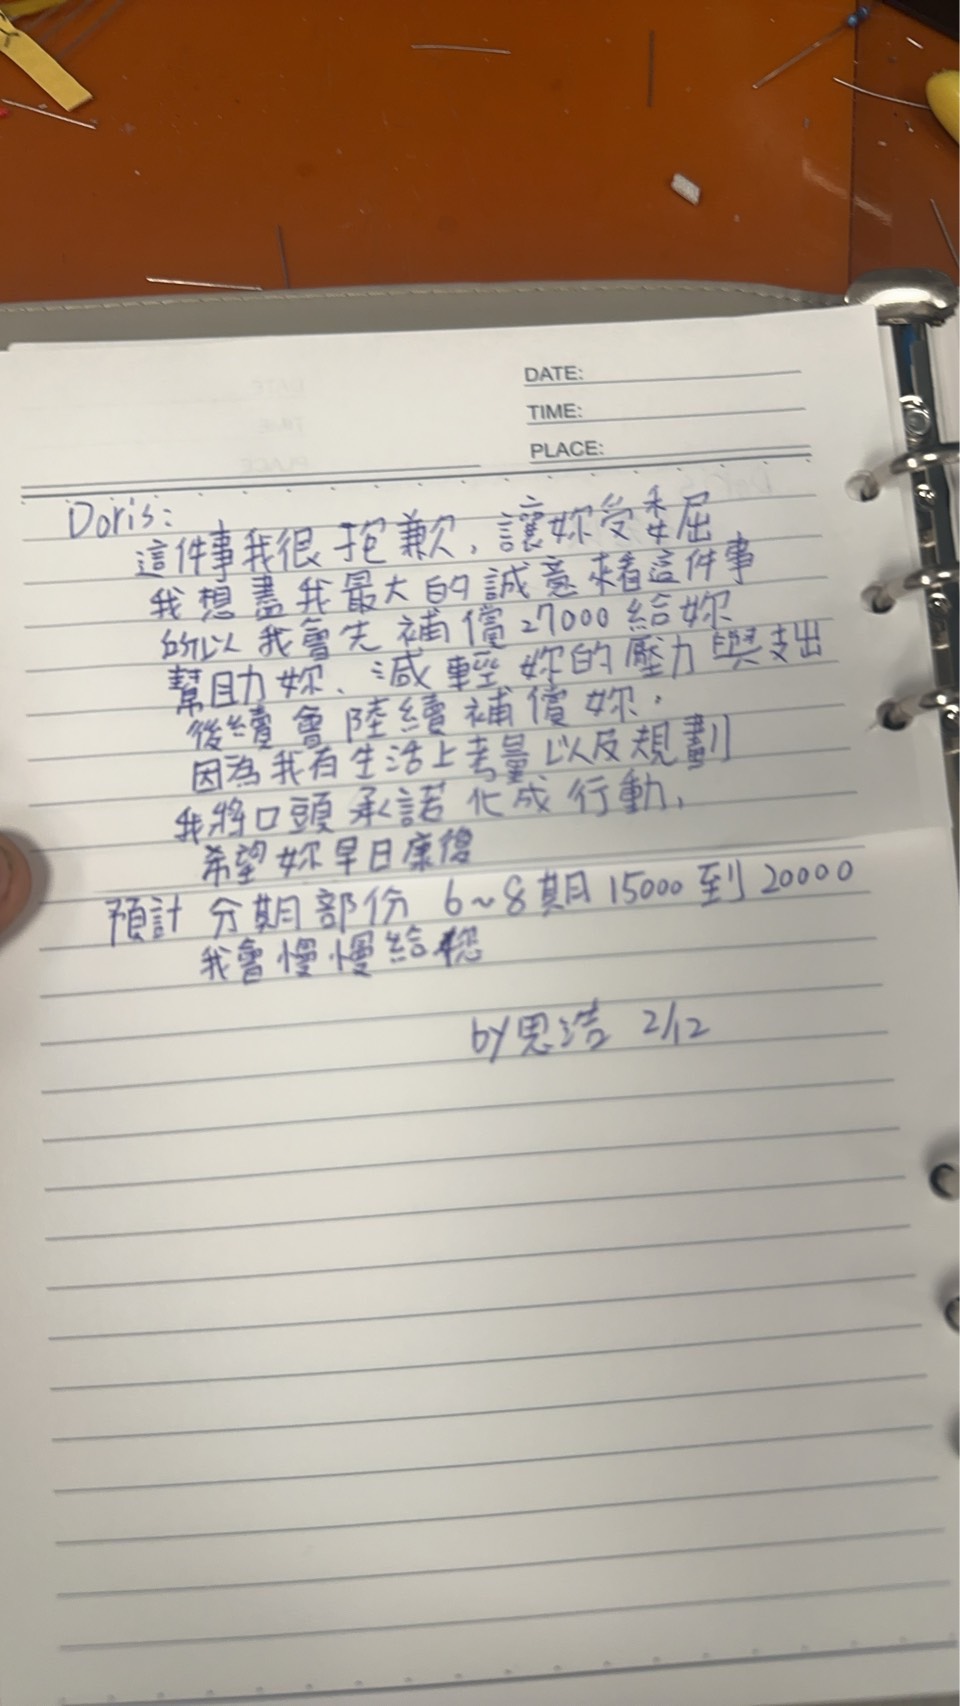 DATE:
TIME:
PLACE:
Doris:
這件事我很抱歉,讓妳受委屈
我想盡我最大的誠意來看這件事
所以我會先補償27000給妳
幫助妳、減輕妳的壓力與支出
後續會陸續補償妳.
因為我有生活上考量以及規劃
我將口頭承諾化成行動,
希望妳早日康復
預計分期部份 6~8期15000到20000
我會慢慢給您
by思浩 2/12